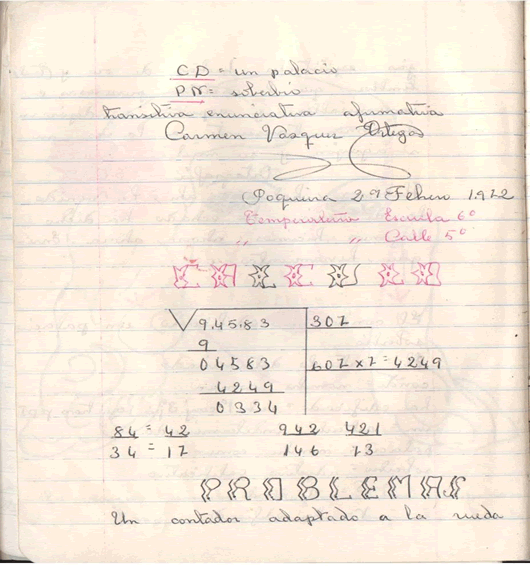 CD = un palacio
PN = soberbio
transitiva enunciativa afirmativa
Carmen Vásquez Ortega
29 Febrero 1912
Temperatura Escuela 6°
" " Calle 5°
√9.45.83 307
9
04583 607 x 7 = 4249
4249
0334
84 = 42 942 421
34 = 17 146 73
PROBLEMAS
Un contador adaptado a la rueda